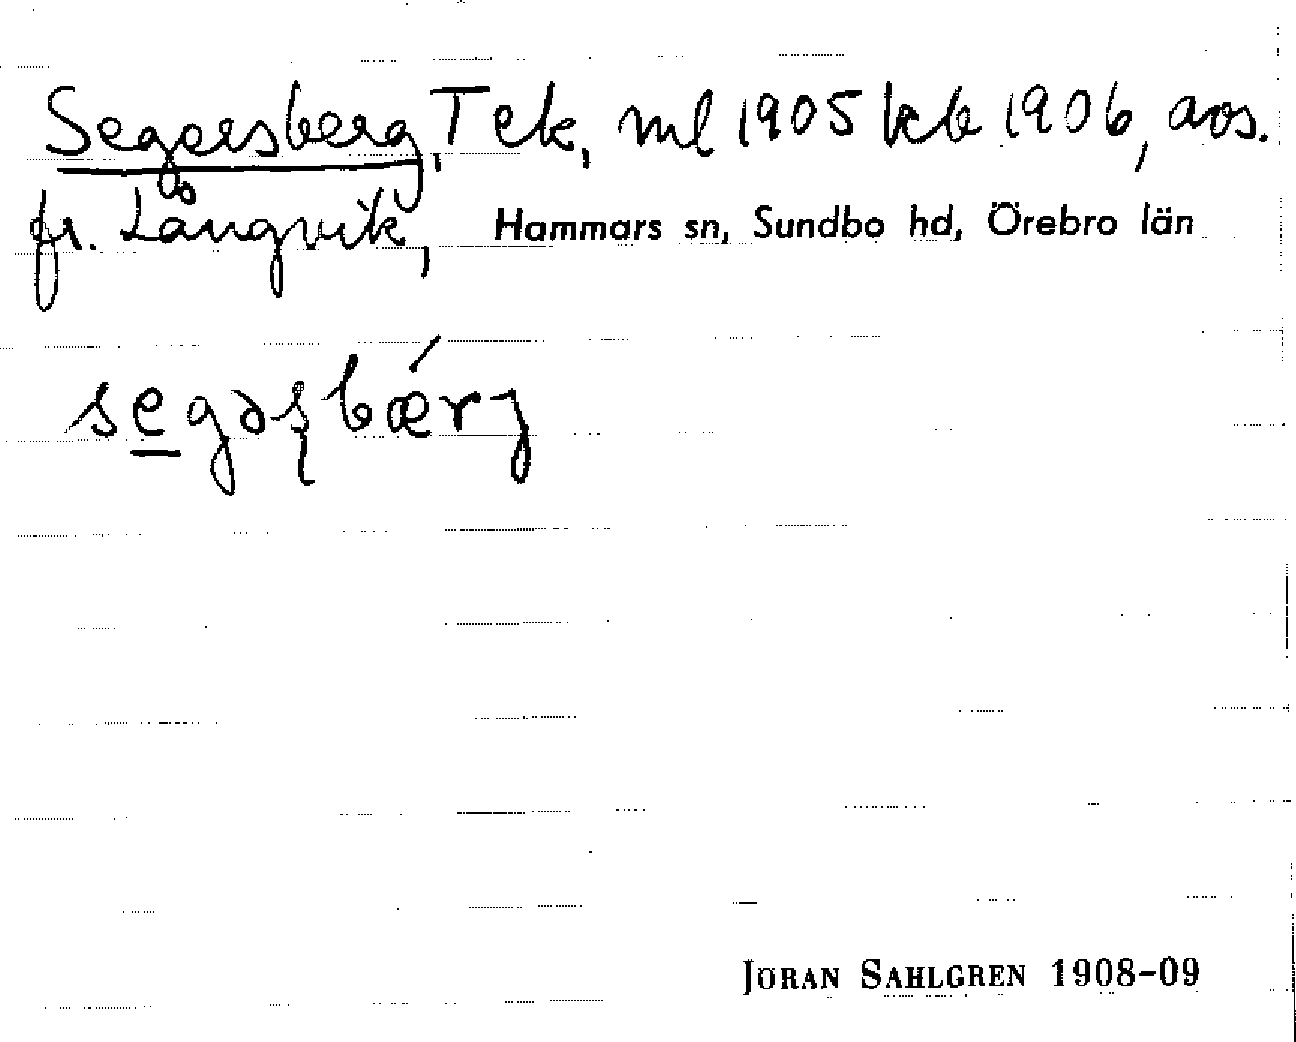 Segersberg, T ek, ml 1905 kb 1906, avs.
fr. Långvik, Hammars sn, Sundbo hd, Örebro län
segəʂbǽrj
JÖRAN SAHLGREN 1908-09